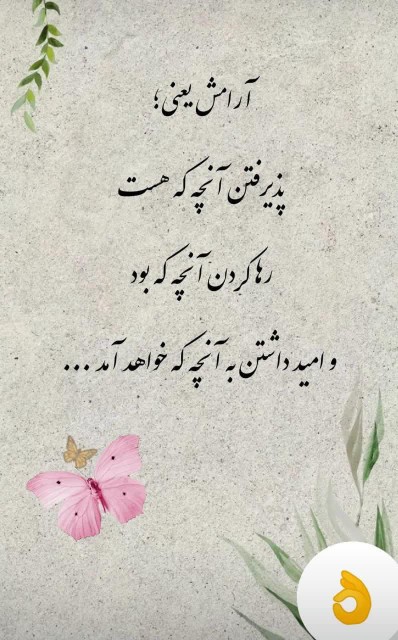 آرامش یعنی؛
پذیرفتن آنچه که هست
رها کردن آنچه که بود
و امید داشتن به آنچه که خواهد آمد ...